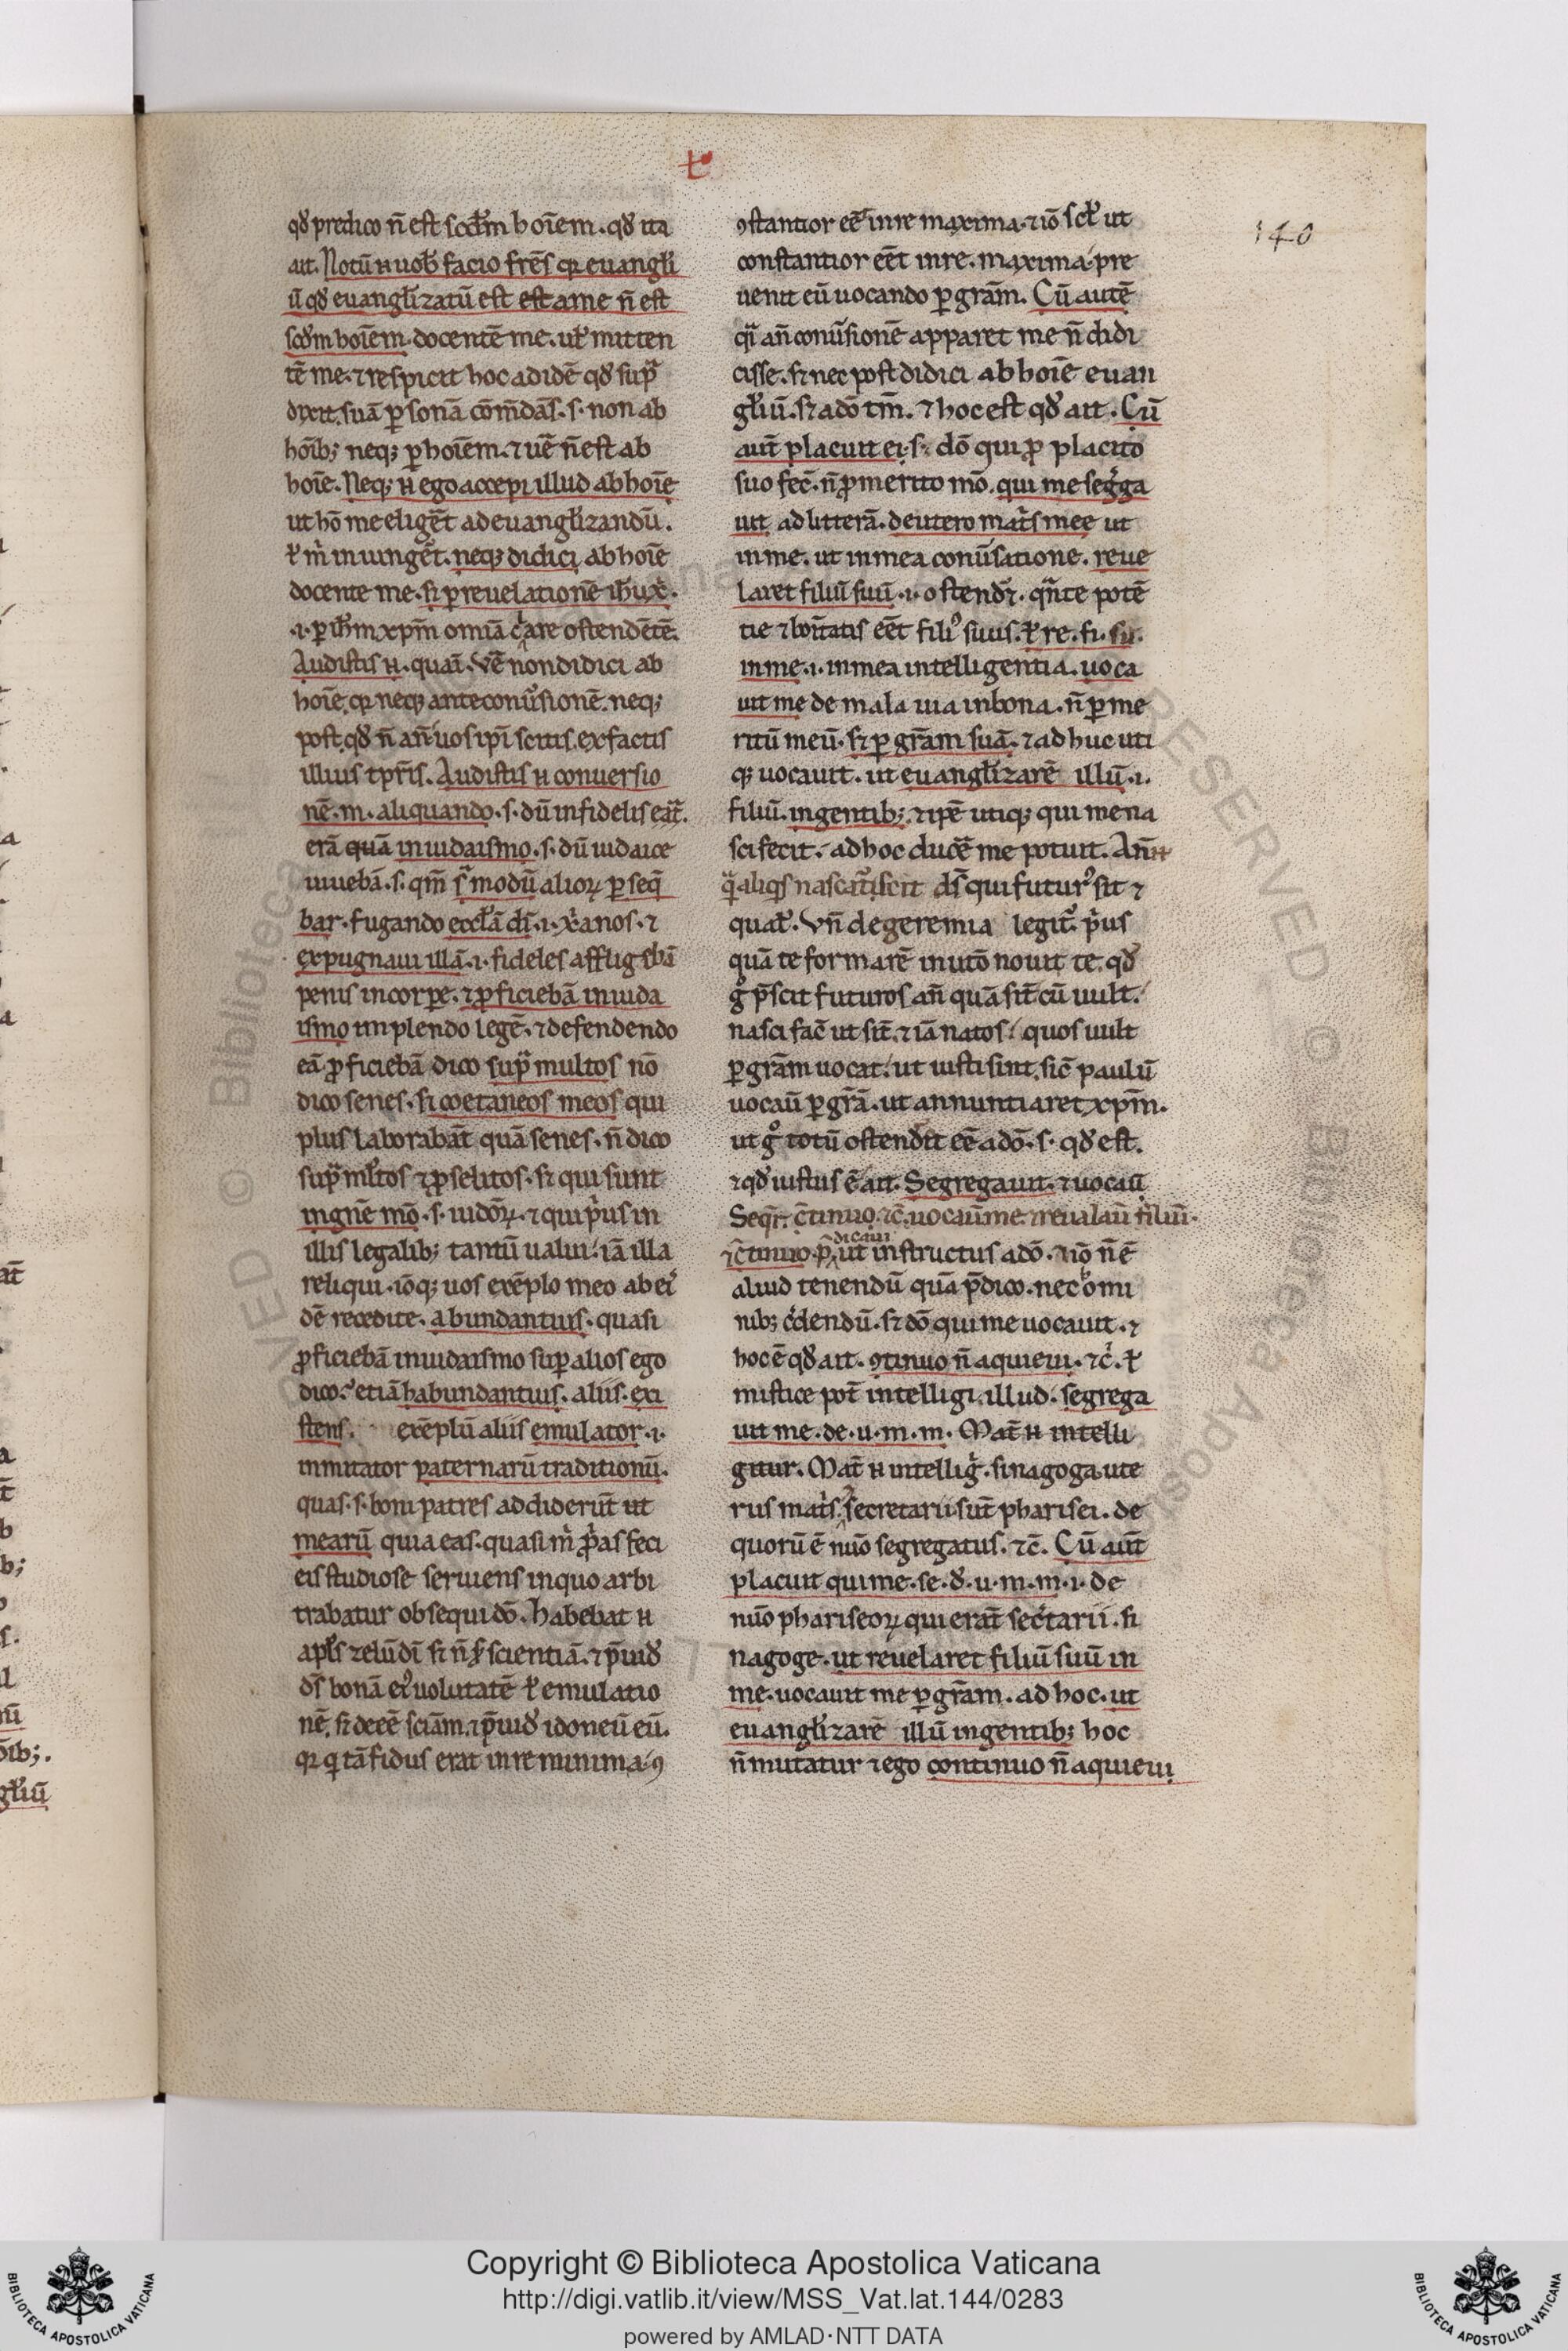 t
140
qđ predico n̄ est scđm hoīem. qđ ita
ait. Notū .n. uob facio frēs qr euangli
ū qđ euanglizatū est est a me n̄ est
scđm hoīem. docentē me. ut mitten
tē me. ⁊ respicit hoc ad idē qđ supͣ
dixit. suā ꝑsonā cōmdās. s. non ab
hōib; neq; ꝑ hoīem. ⁊ uē n̄ est ab
hoīe. Neq; .n. ego accepi illud ab hoīe
ut hō me eligēt ad euanglizandū.
ł m̄ iniungēt. neq; didici ab hoīe
docente me. s; ꝑ reuelationē ihu xp̄.
.i. ꝑ ihm xpm omīa clare ostendētē.
Audistis .n. quaī. Vē non didici ab
hoīe. qr neq; ante conu̾sionē. neq;
post. qđ n̄ an̄ uos ipi scitis. ex factis
illius tpris. Audistis .n. conuersio
nē. m. aliquando. s. dū infidelis
erā quā in iudaismo. s. dū iudaice
uiuebā. s. qm̄ modū alioꝝ ꝑseq̄
bar. fugando ecclā dī. i. x̄anos. ⁊
expugnaui illā. i. fideles affligebā
penis in corpe. ⁊ ꝓficiebā in iuda
ismo implendo legē. ⁊ defendendo
eā ꝓficiebā dico supͣ multos nō
dico senes. s; coetaneos meos qui
plus laborabāt quā senes. n̄ dico
supͣ mltos ⁊ ꝓselitos. s; qui sunt
in gn̄e mō. s. iudōꝝ. ⁊ qui pͥus in
illis legalib; tantū ualui. iā illa
reliqui. iōq; uos exēplo meo ab eiͥ
dē recedite. abundantius. quasi
ꝓficiebā in iudaismo sup alios ego
dico. etiā habundantius. aliis. exi
stens. exēplū aliis emulator .i.
inmitator paternarū traditionū.
quas .s. boni patres addiderūt ut
mearū quia eas. quasi m̄ ꝓp̄as feci
eis studiose seruiens in quo arbi
trabatur obsequi dō. habebat .n.
apls zelū dī s; n̄ scientiā. ⁊ p̄uidͭ
ds̄ bonā eiꝰ uolutatē ł emulatio
nē. s; deeē sciām. ⁊ p̄uidͭ idoneū eū.
qr q tā fidus erat in re minima. ꝯ
ꝯstantior eē͛ in re maxima. ⁊ iō sct ut
constantior eēt in re. maxima. pre
uenit eū uocando ꝑ grām. Cū autē
qͣ an̄ conu̾sionē apparet me n̄ didi
cisse. s; nec post didici ab hoīe euan
gliū. s; a dō tm̄. ⁊ hoc est qđ ait. Cū
aut̄ placuit ei. s. dō qui ꝓ placito
suo fec̄. n̄ ꝓ merito mō. qui me segͤga
uit ad litterā. de utero matͥs mee ut
in me. ut in mea conu̾satione. reue
laret filiū suū. i. ostendͤt. qn̄te potē
tie ⁊ boītatis eēt filiꝰ suus. ł re. fi. su.
in me. i. in mea intelligentia. uoca
uit me de mala uia in bona. n̄ ꝑ me
ritū meū. s; ꝑ grām suā. ⁊ ad huc uti
q; uocauit. ut euanglizarē illū. i.
filiū. in gentib; ⁊ ipē utiq; qui me na
sci fecit. ad hoc ducē͛ me potuit. An̄ .n.
qͣ aliqͥs nascat̾ scit ds̄ qui futurꝰ sit ⁊
qual̾. Vn̄ de geremia legit̾. pͥus
quā te formarē in utō nouit te. qđ
gͦ p̄scit futuros an̄ quā sīt. cū uult
nasci fac̄ ut sīt. ⁊ iā natos. quos uult
ꝑ grām uocat. ut iusti sint. sic̄ paulū
uocaū ꝑ grā. ut annuntiaret xpm.
ut gͦ totū ostendit eē a dō. s. qđ est.
⁊ qđ iustus ē ait. Segregauit. ⁊ uocaū
Seqr. ↄtinuo. ⁊c̄. uocaū me. ⁊ reualaū filiū.
dicaui
⁊ ↄtinuo. p̄ ut instructus a dō. ⁊ iō n̄ ē
aliud tenendū quā p̄dico. nec homi
nib; cͤdendū. s; dō qui me uocauit. ⁊
hoc ē qđ ait. ꝯtinuo n̄ aquieui. ⁊c̄. ł
mistice pot̄ intelligi. illud. segrega
uit me. de. u. m. m. Mat̄ .n. intelli
gitur. Mat̄ .n. intelligͥ. sinagoga. ute
rus matͥs. secretarii. sūt pharisei. de
quorū ē nūo segregatus. ⁊c̄. Cū aut̄
placuit qui me. se. đ. u. m. m. i. de
nūo phariseoꝝ qui erāt secͤtarii. si
nagoge. ut reuelaret filiū suū in
me. uocauit me ꝑ grām. ad hoc. ut
euanglizarē illū in gentib; hoc
n̄ mutatur ⁊ ego continuo n̄ aquieui
Copyright © Biblioteca Apostolica Vaticana
http://digi.vatlib.it/view/MSS_Vat.lat.144/0283
powered by AMLAD·NTT DATA
BIBLIOTECA APOSTOLICA VATICANA
BIBLIOTECA APOSTOLICA VATICANA